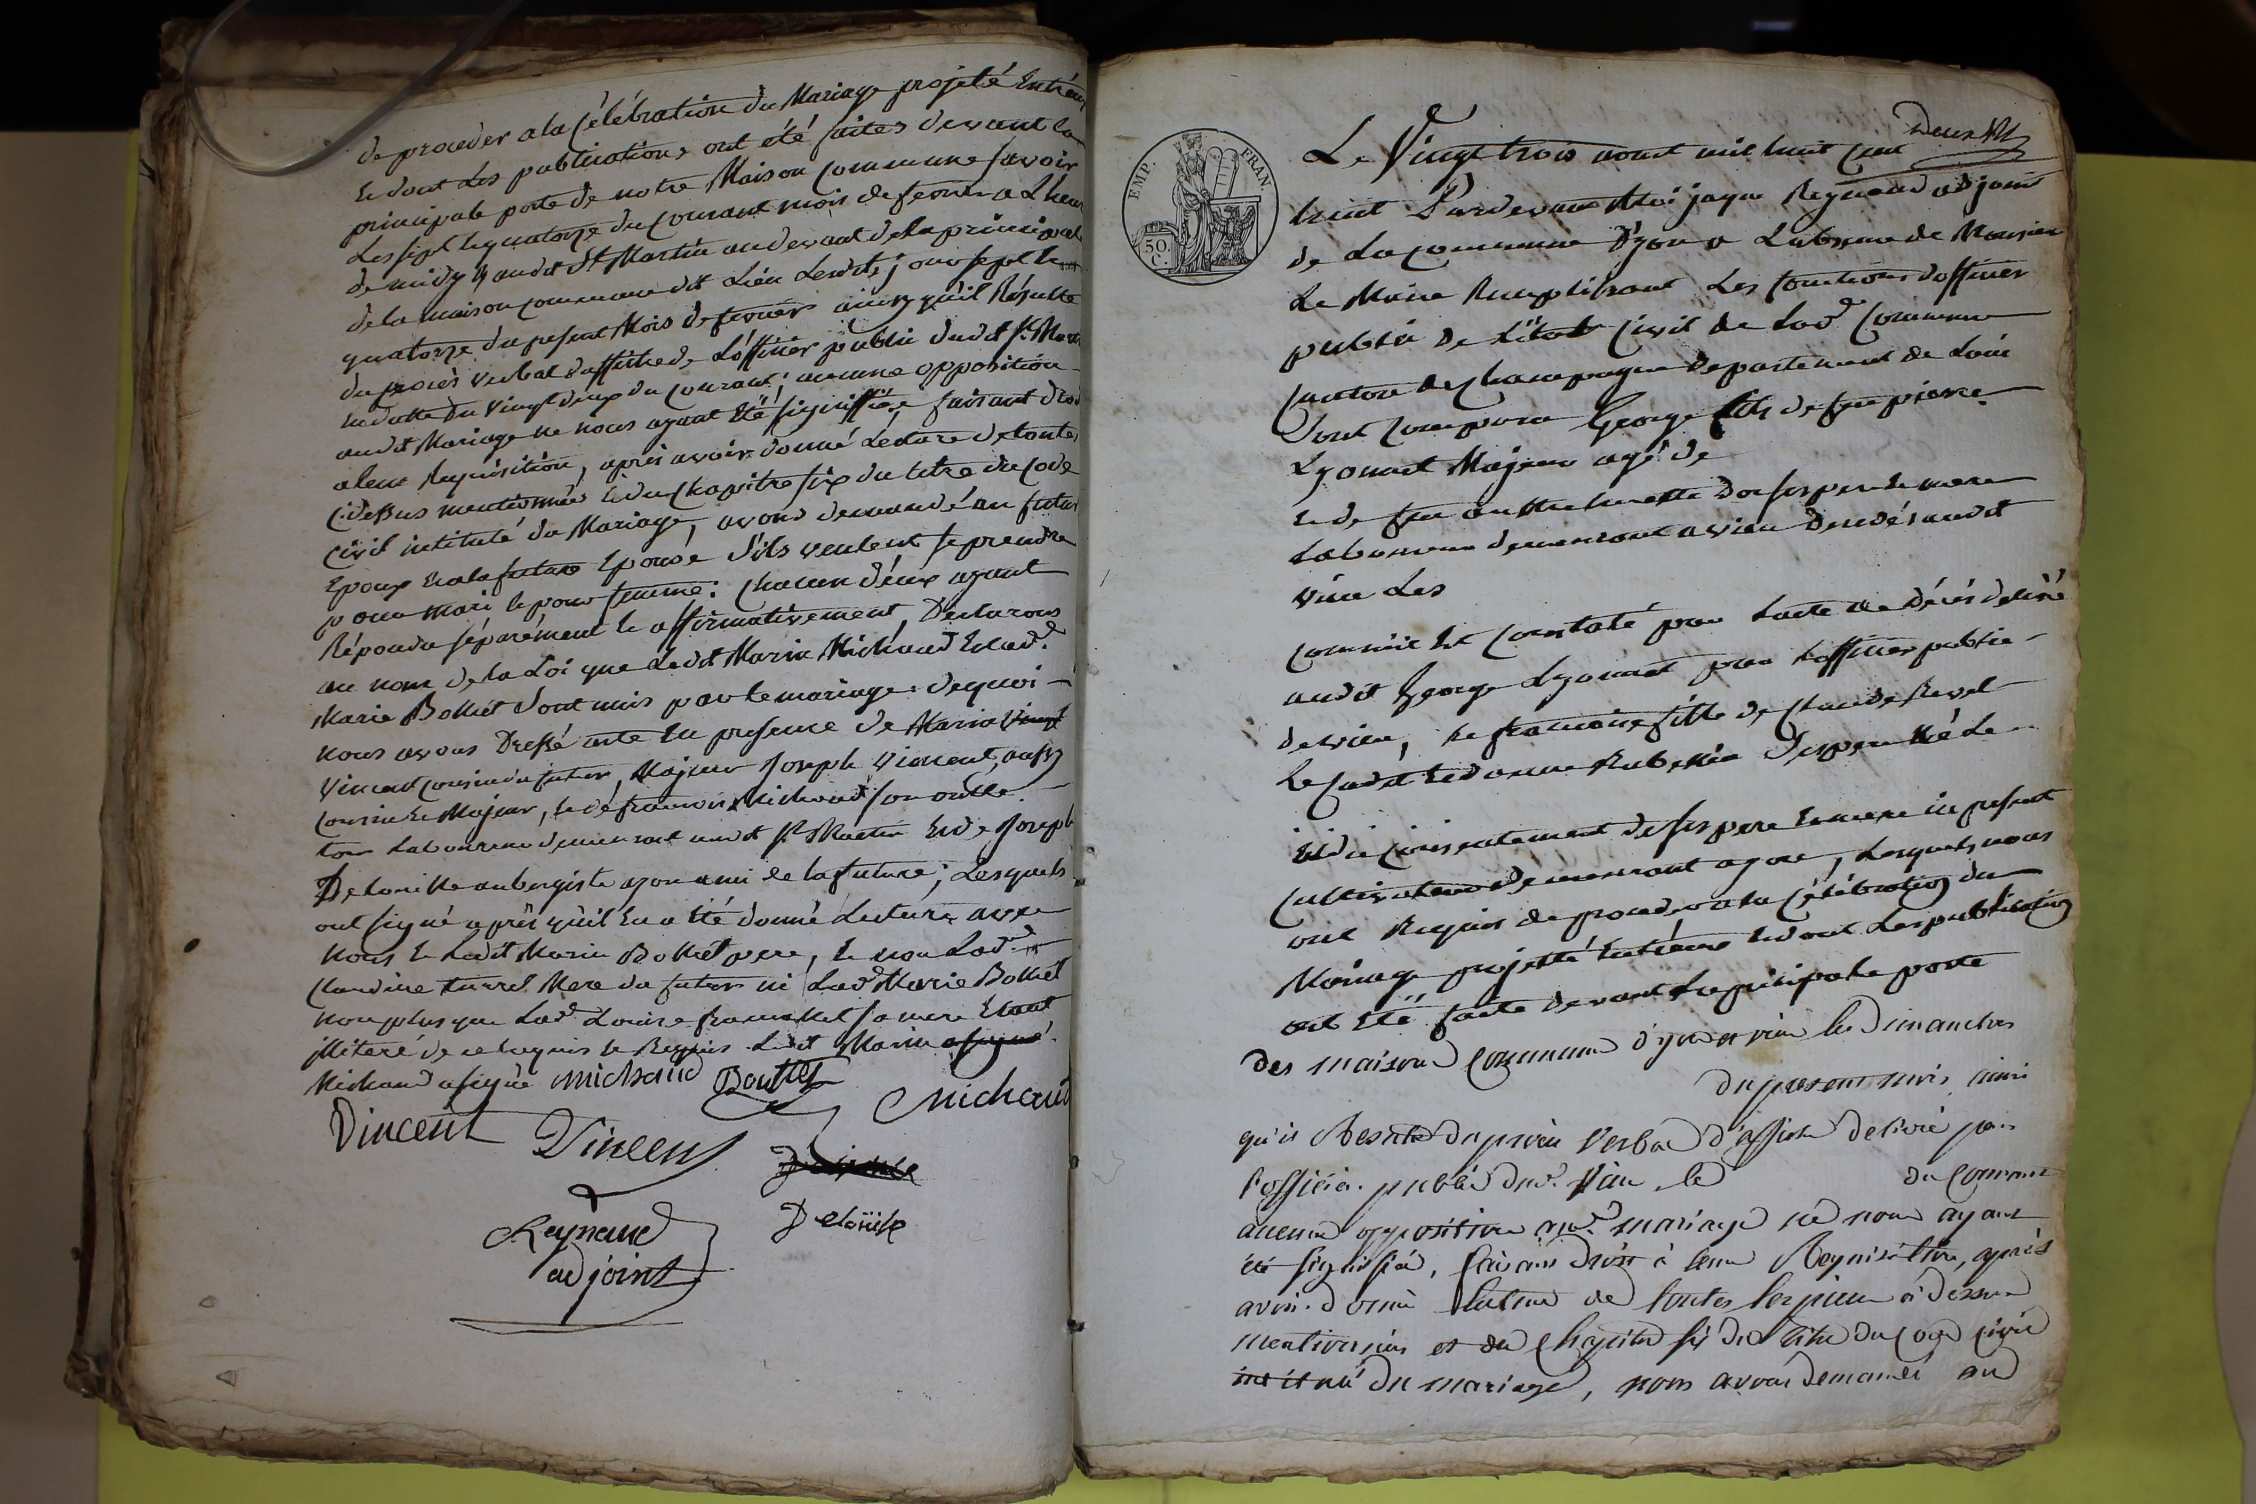 de proceder a la Célébration du Mariage projeté Entréeux
Et dont Les publications ont été faites devant la
principale porte de notre Maison Commune savoir
Les sept Et quatorze du Courant mois de fevrier a L'heure
de midy & audit St Martin au devant de la principale
de la maison commune dit Lieu Lesdits jours sept Et
quatorze du present Mois de fevrier ainsy qu'il Résulte
du procès verbal d'affiche de L'officier public dudit St Martin
En datte du Vingt deux du Courant; aucune opposition
audit Mariage ne nous ayant Eté signiffiée faisant droit
a leur Requisition, après avoir donné Lecture de toutes
Cidessus mentionnées Et du Chapitre six du titre du Code
Civil intitulé du Mariage, avons demandé au futur
Epoux Et a la future Epouse s'ils veulent se prendre
pour mari Et pour femme: Chacun d'eux ayant
Répondu séparément Et affirmativement, Declarons
au nom de la Loi que Ledit Marin Michaud Et lad.e
Marie Bottet sont unis par le mariage. dequoi
nous avons Dressé acte En presence de Marin Vincent
Vincent cousin du futur, Majeur Joseph Vincent, aussy
Cousin Et Majeur, Et de francois Michaud son oncle
tous Laboureurs demeurant audit St Martin Et de Joseph
Delouille aubergiste a yon ami de la future; Lesquels
ont signé après qu'il En a Eté donné Lecture avec
Nous Et Ledit Marin Bottet pere, Et non Lad.e
Claudine turrel Mere du futur ni Lad.e Marie Bottet
non plus que Lad.e Louise sa mere Etant
illiteré de ce Enquis Et Requis Ledit Marin a signé
Michaud a signé Michaud Bottet Michaud
Vincent Vincent
Delouille
Reynaud
adjoint
Deux
EMP. FRAN.
50. C.
Le Vingt trois aout mil huit cent
huit Pardevant Moi jaque Reynaud adjoint
de La Commune D'yon a L'absence de Monsieur
Le Maire Remplissant Les fonctions d'officier
public de L'Etat Civil de Lad.e Commune
Canton de Champagne Departement de Lain
Sont Comparu George fils de feu pierre
Lyonnet Majeur agé de
Et de feu ses pere Et mere
Laboureur demeurant a vieu decedés audit
vieu Les
comme Est Constaté par Lacte de décés delivré
audit George Lyonnet par Lofficier public
de vieu, Et francoise fille de Claude Revel
Le Cadet Et d'anne Rubellin
Et du Consentement de ses pere Et mere ici present
Cultivateurs demeurant a yon, Lesquels nous
ont Requis de proceder a la Célébration du
Mariage projetté Entréeux Et dont Les publications
ont Eté faite devant La principale porte
des maisons Commune d'yon et vieu les Dimanches
du present mois, ainsi
qu'il Resulte du procès Verbal d'affiche delivré par
l'officier public dud.t Vieu le du Courant
aucune opposition aud.t mariage ne nous ayant
été signifiée, faisant droit à leur Requisition, après
avoir donné lecture de toutes les pieces ci dessus
mentionnées et du Chapitre six du titre du Code Civil
intitulé du mariage, nous avons demandé au